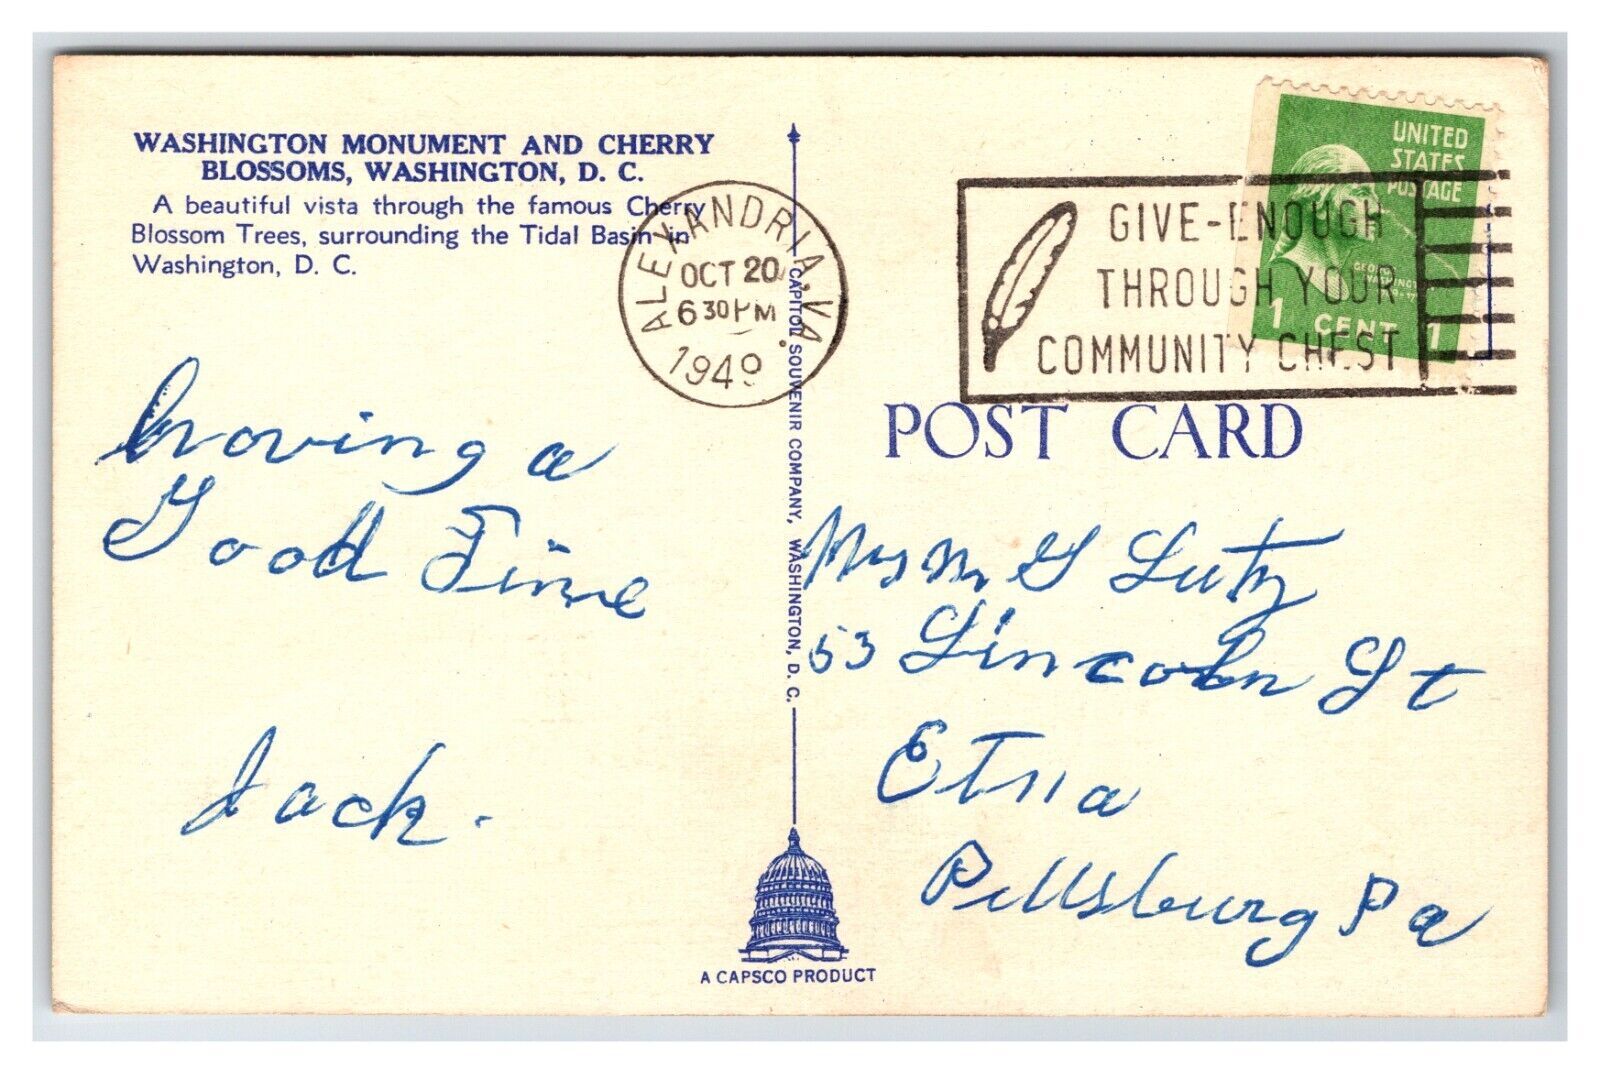 WASHINGTON MONUMENT AND CHERRY
BLOSSOMS, WASHINGTON, D. C.
A beautiful vista through the famous Cherry
Blossom Trees, surrounding the Tidal Basin in
Washington, D. C.
ALEXANDRIA, VA.
OCT 20
6 30 PM
1949
GIVE-ENOUGH
THROUGH YOUR
COMMUNITY CHEST
UNITED
STATES
POSTAGE
1 CENT 1
POST CARD
CAPITOL SOUVENIR COMPANY, WASHINGTON, D. C.
Having a
Good Time
Jack.
Mrs M G Lutz
53 Lincoln St
Etna
Pittsburg Pa
A CAPSCO PRODUCT